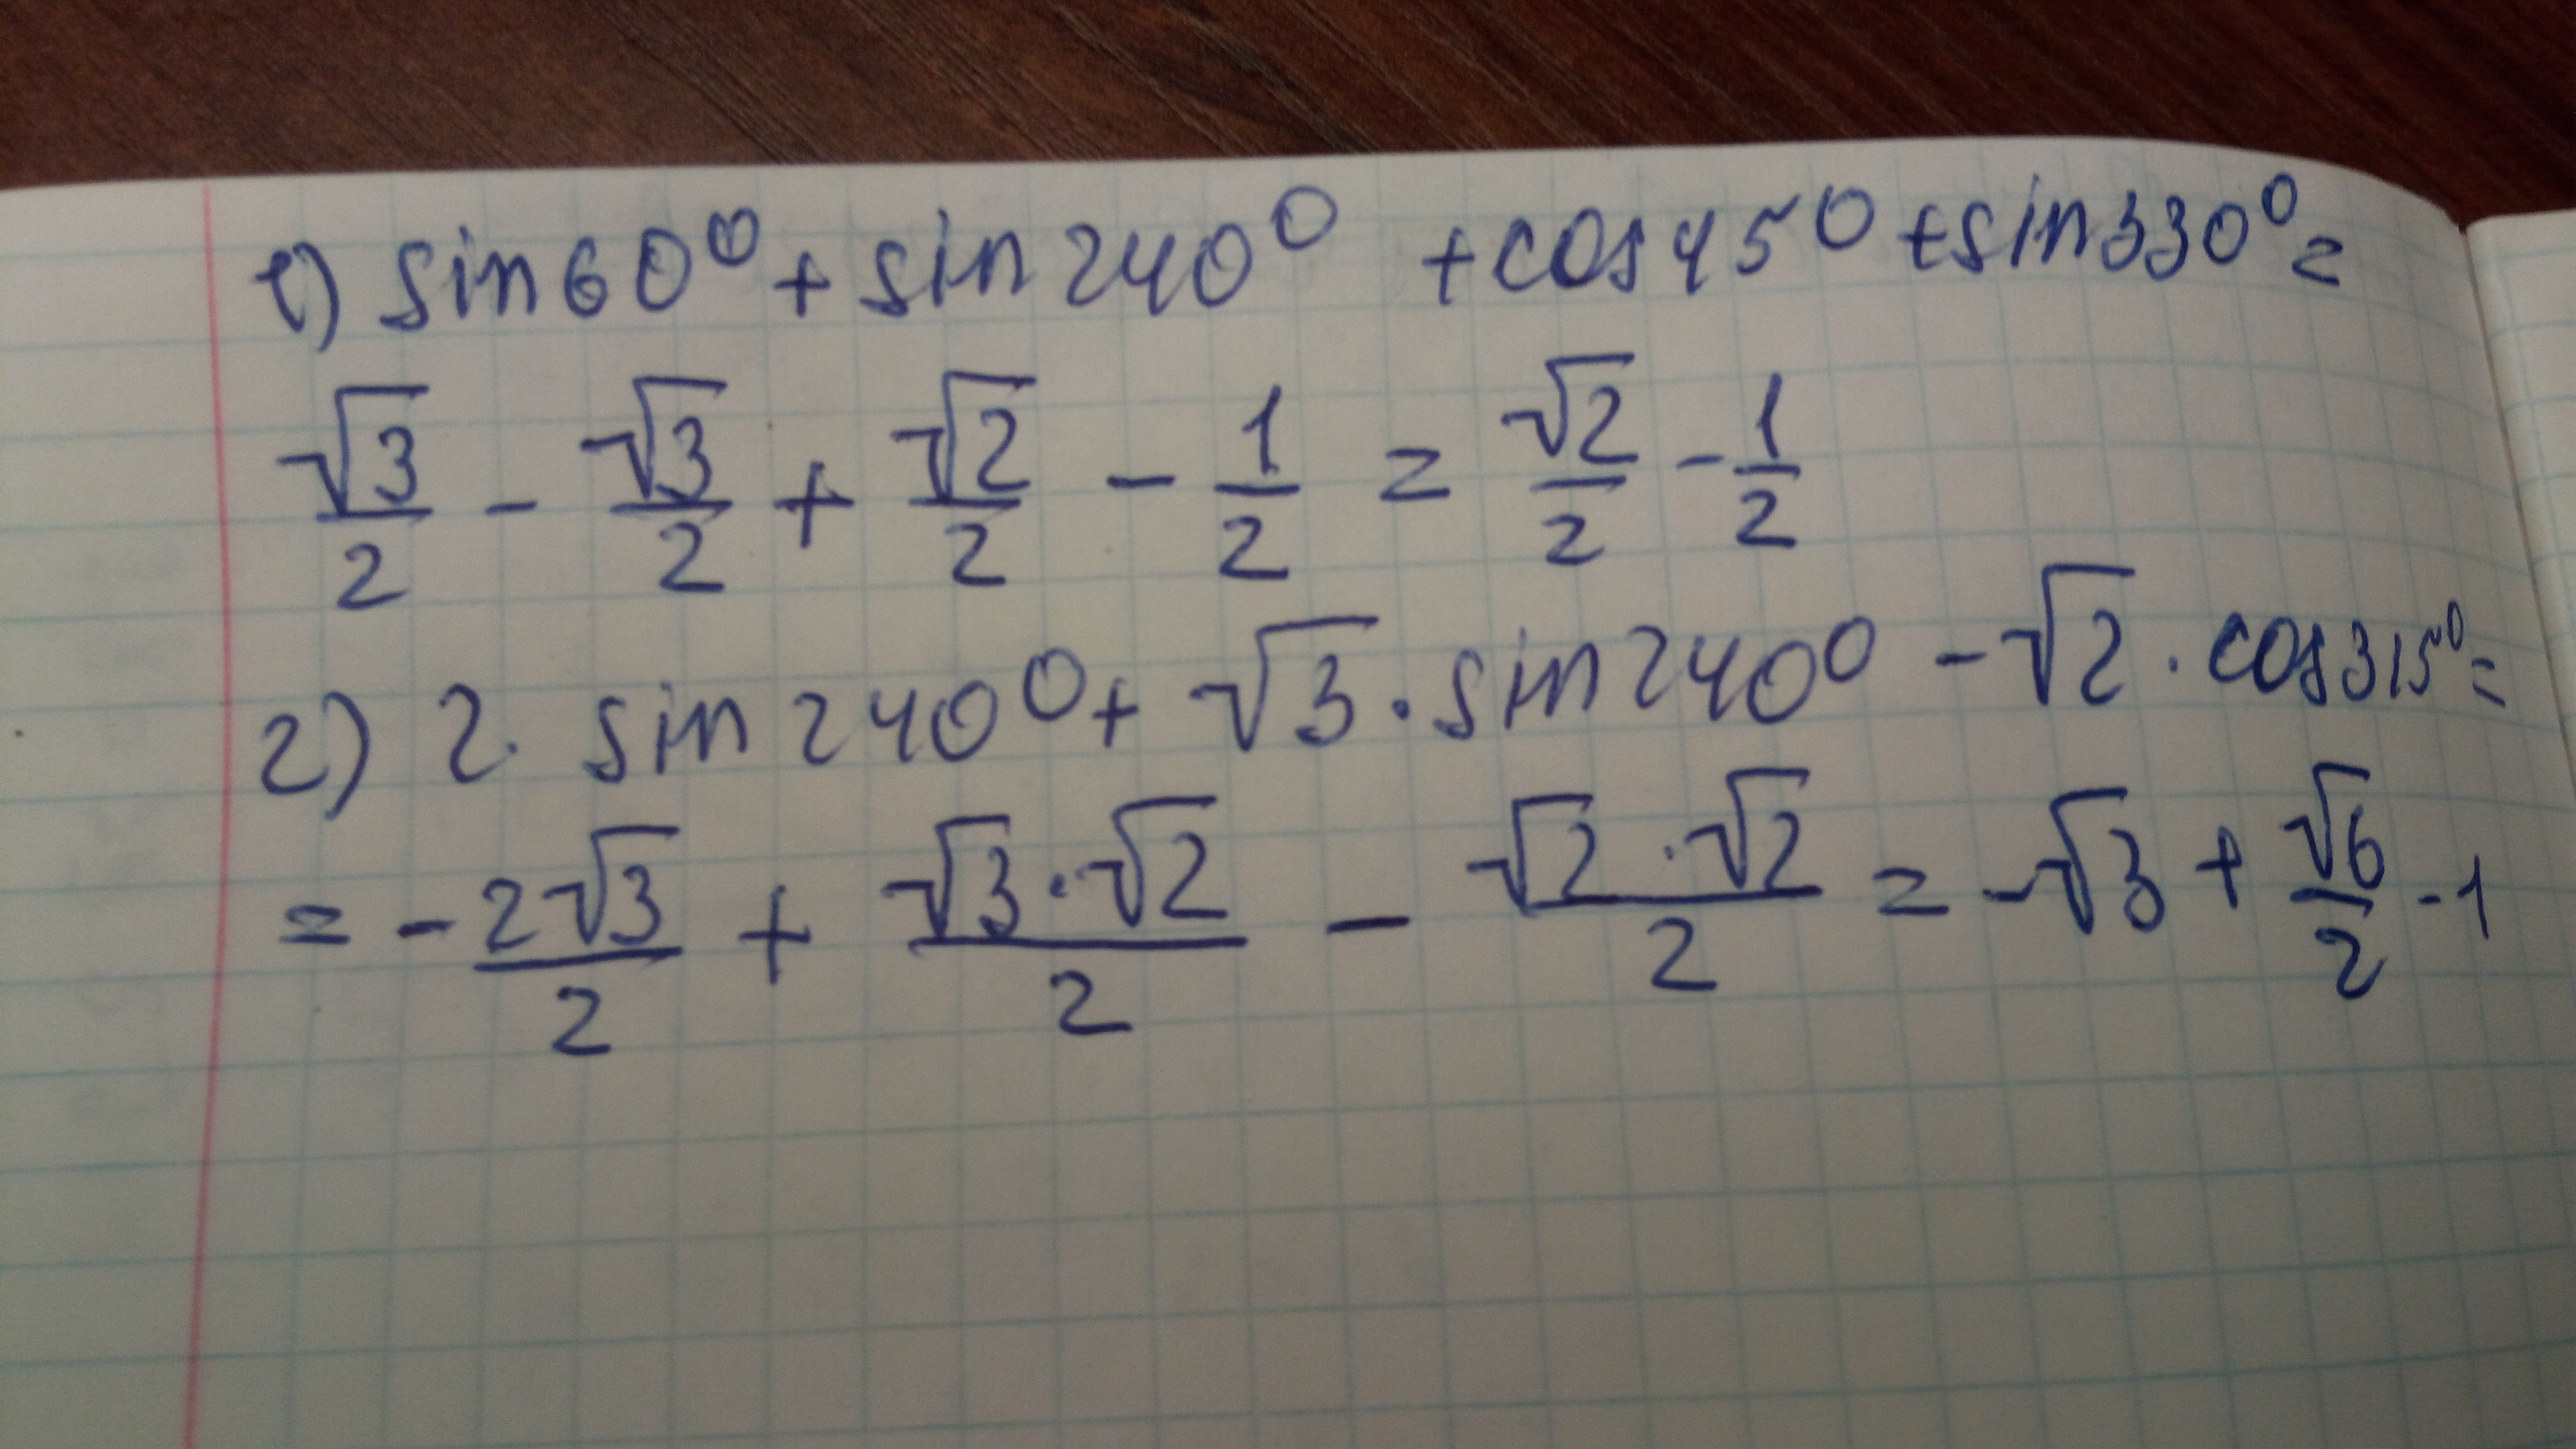 1) sin60° + sin240° + cos45° + sin330° =
√3/2 - √3/2 + √2/2 - 1/2 = √2/2 - 1/2
2) 2· sin240° + √3 · sin240° - √2 · cos315° =
= - 2√3/2 + √3·√2/2 - √2·√2/2 = -√3 + √6/2 - 1